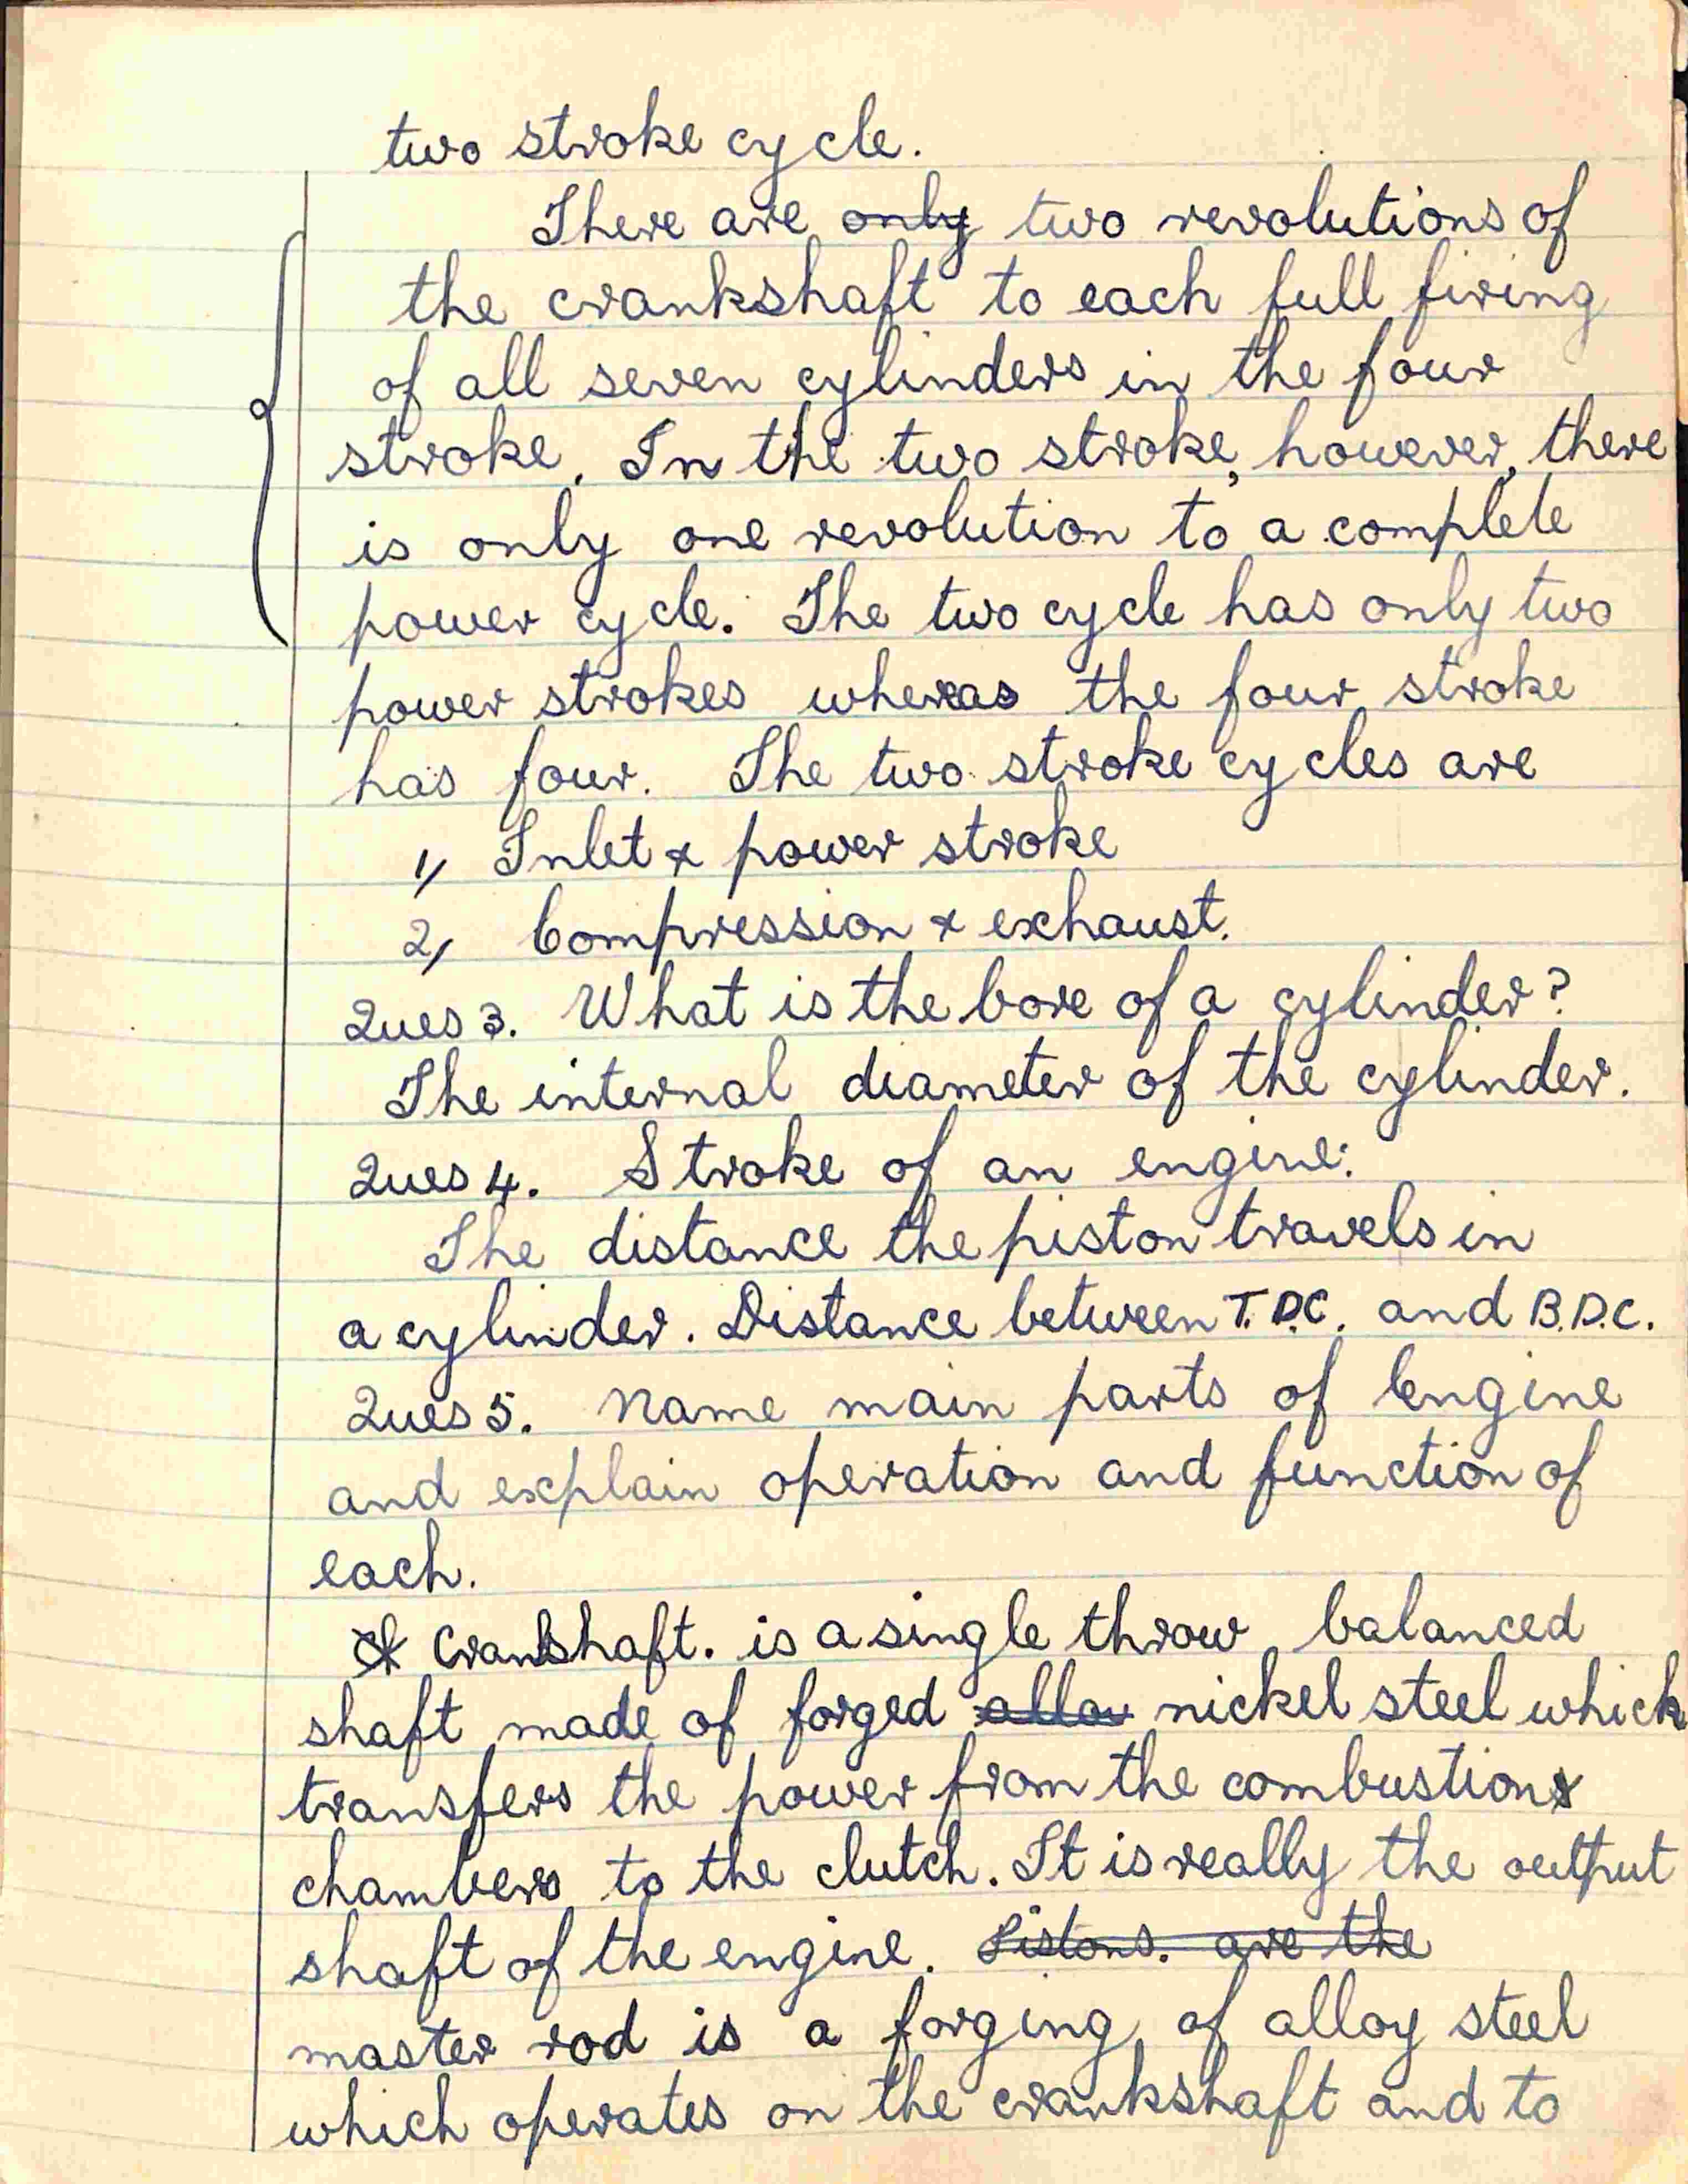 two stroke cycle.
There are only two revolutions of
the crankshaft to each full firing
of all seven cylinders in the four
stroke. In the two stroke, however, there
is only one revolution to a complete
power cycle. The two cycle has only two
power strokes wheras the four stroke
has four. The two stroke cycles are
1, Inlet & power stroke
2, Compression & exhaust.
Ques 3. What is the bore of a cylinder?
The internal diameter of the cylinder.
Ques 4. Stroke of an engine:
The distance the piston travels in
a cylinder. Distance between T.D.C. and B.D.C.
Ques 5. Name main parts of Engine
and explain operation and function of
each.
Crankshaft. is a single throw balanced
shaft made of forged nickel steel which
transfers the power from the combustion
chambers to the clutch. It is really the output
shaft of the engine. Pistons. are the
master rod is a forging of alloy steel
which operates on the crankshaft and to